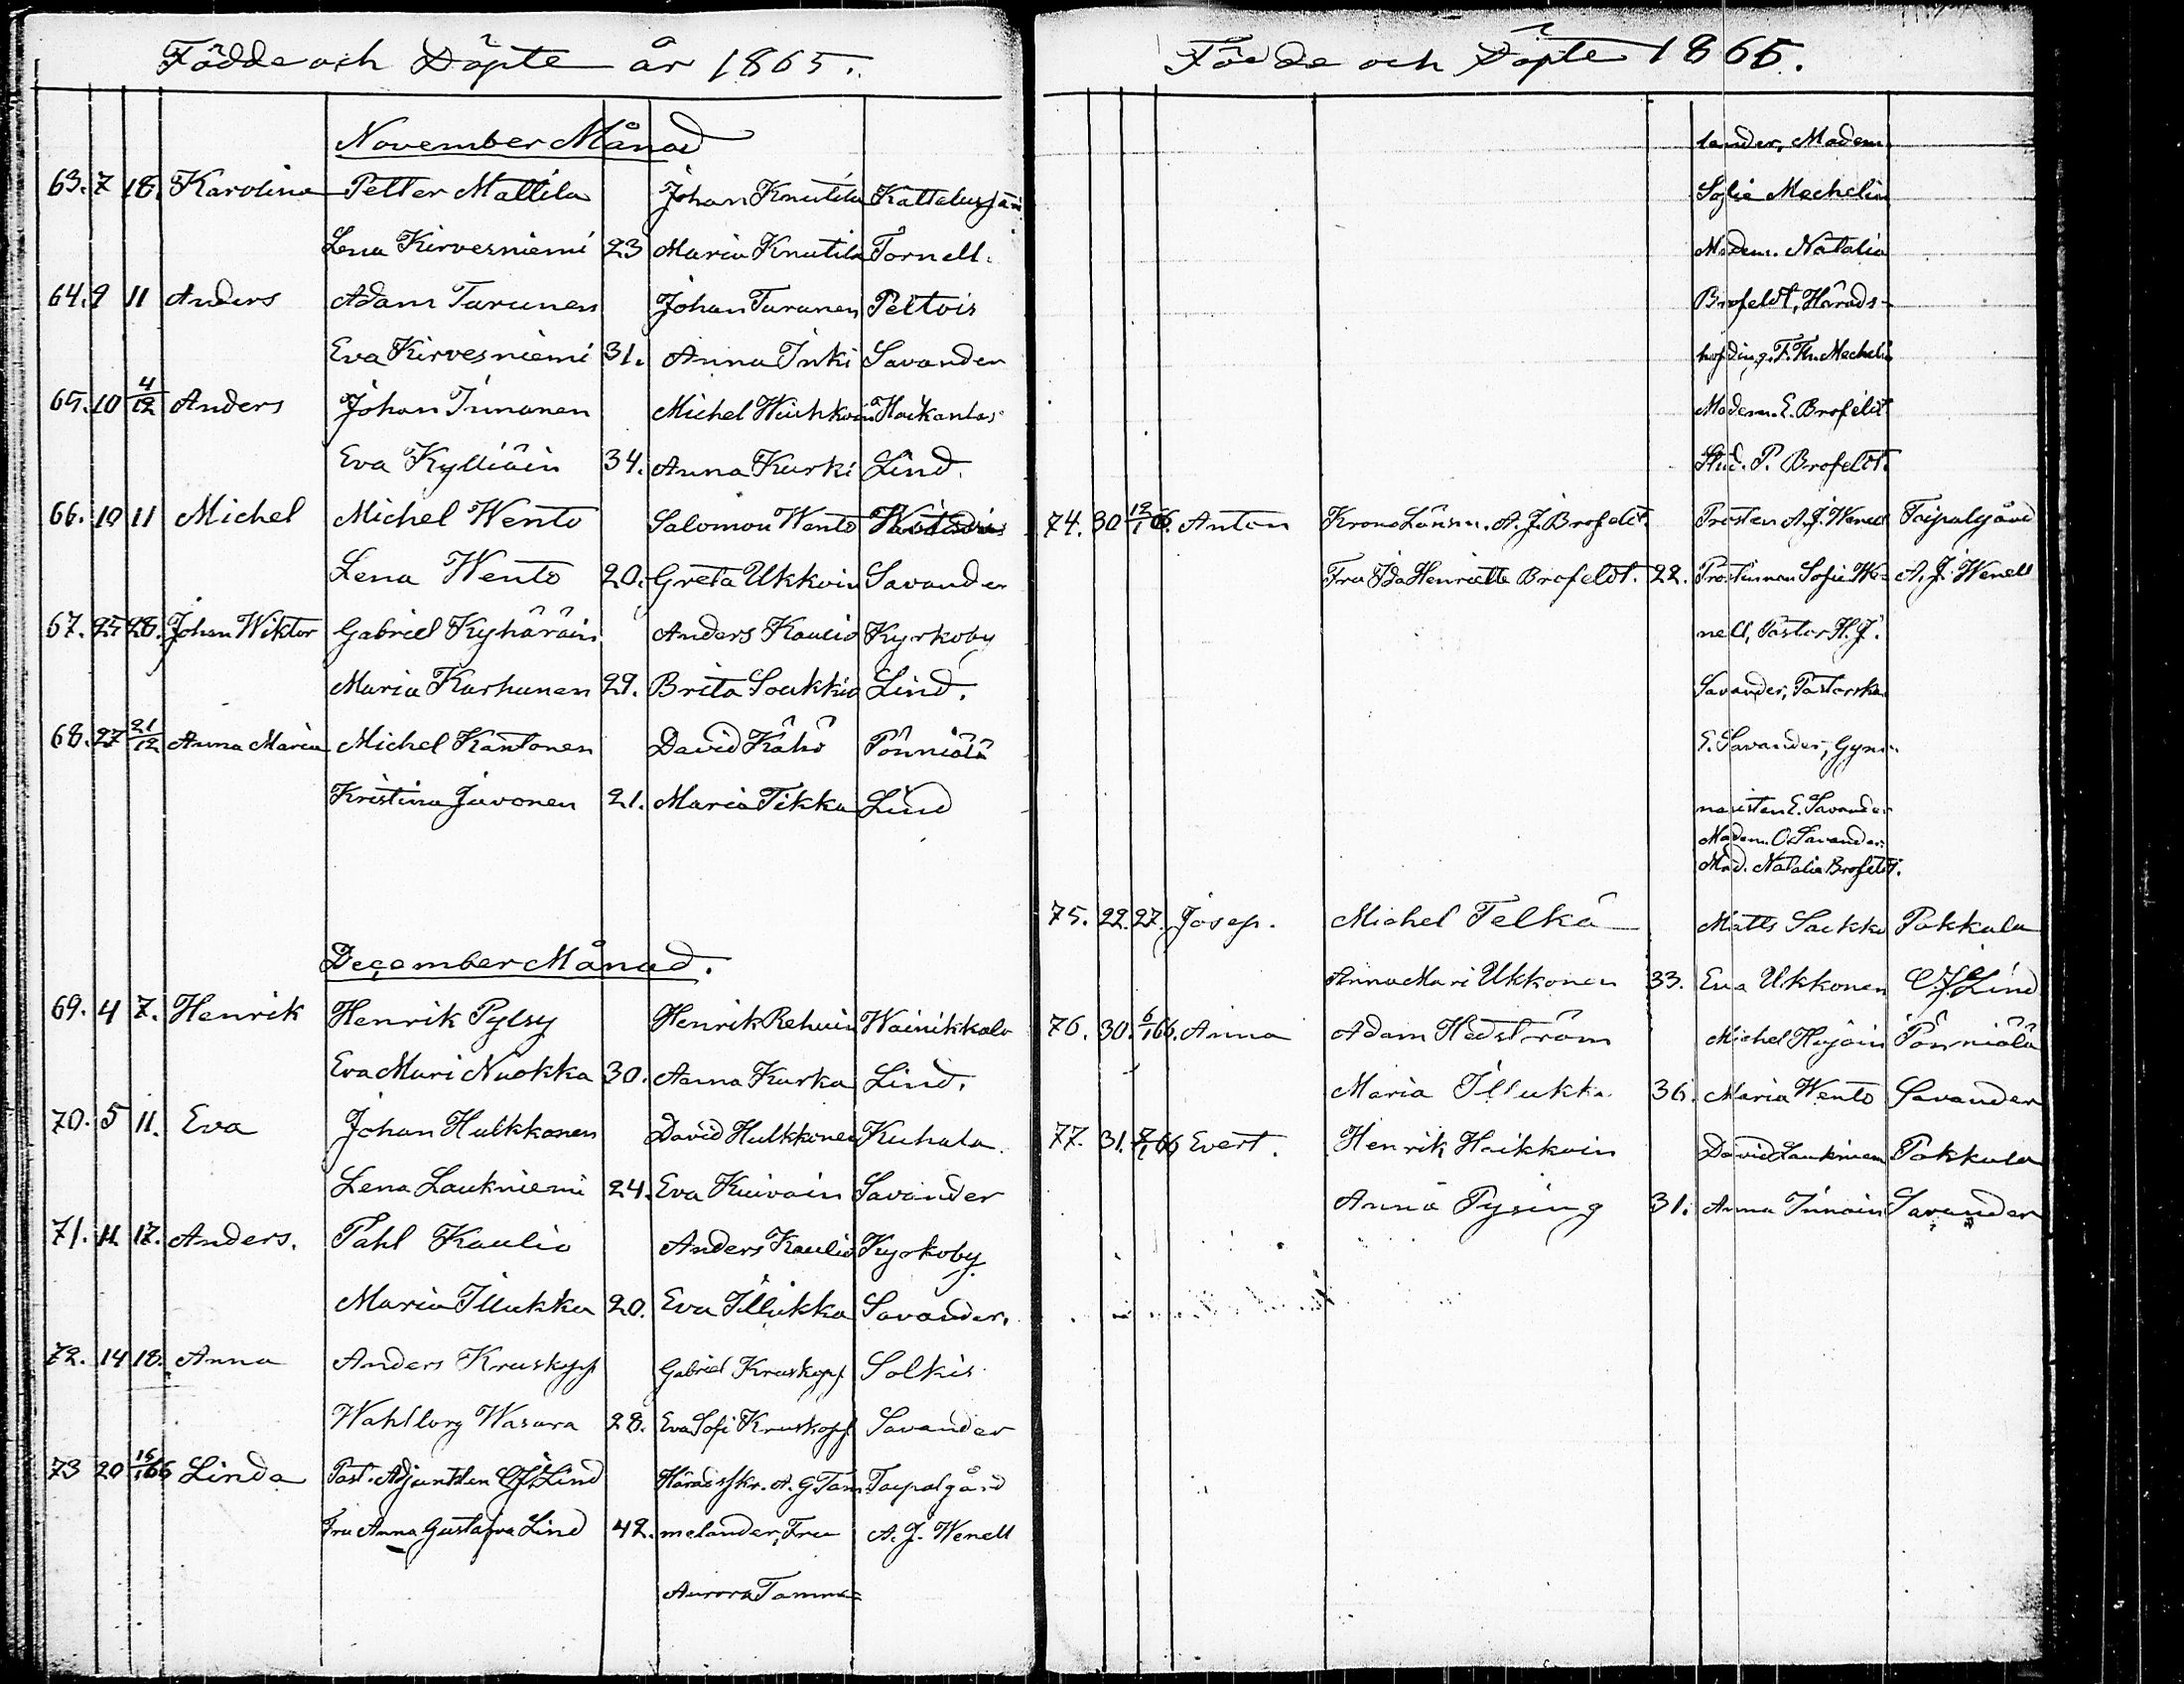 Födde och Döpte år 1865.
November Månad
63. 7 18. Karolina Petter Mattila Johan Knutila Kattelusjärvi
Lena Kirvesniemi 23 Maria Knutila Tornell.
64. 9 11 Anders Adam Turunen Johan Turunen Peltois
Eva Kirvesniemi 31. Anna Inki Savander
65. 10 4/12 Anders Johan Innanen Michel Hiuhkoin
Eva Kylliäin 34. Anna Kurki Lind.
66. 10 11 Michel Michel Wento Salomon Wento
Lena Wento 20. Greta Ukkoin Savander
67. 25 28. Johan Wiktor Gabriel Kyhäräin Anders Kaulio Kyrkoby
Maria Karhunen 29. Brita Soukkio Lind.
68. 27 21/12 Anna Maria Michel Kantonen David Kähö Pönniälä
Kristina Juvonen 21. Maria Tikka Lind
December Månad.
69. 4 7. Henrik Henrik Pylsy Henrik Rehuin Wainikkala
Eva Mari Nuokka 30. Anna Kurka Lind.
70. 5 11. Eva Johan Hulkkonen David Hulkkonen Kuhala.
Lena Laukniemi 24. Eva Kuivain Savander
71. 11 17. Anders. Pahl Kaulio Anders Kaulio Kyrkoby.
Maria Illukka 20. Eva Illukka Savander.
72. 14 18. Anna Anders Kruskopf Gabriel Kruskopf Solkis
Wahlborg Wasara 28. Eva Sofi Kruskopf Savander
73 20 15/1 66 Linda Past. Adjunkten C J Lind Häradsskr. A. G Tam Taipalgård
Fru Anna Gustafva Lind 42. melander, Fru A. J. Wenell
Aurora Tamme=
Födde och Döpte 1865.
lander, Madem.
Sofie Mechelin
Madem. Natalia
Brofeldt, Härads-
höfding. F. Th. Mechelin
Madem. E. Brofeldt
Stud. P. Brofeldt.
74. 30 12/1 66. Anton Krono Länsm. A. J. Brofeldt. Prosten A. J. Wenell Taipalgård
Fru Ida Henriette Brofeldt. 22. Prostinnan Sofie We= A. J. Wenell
nell, Pastor H. J.
Savander, Pastorskan
E. Savander, Gym-
nasisten E. Savander
Madem. O. Savander.
Mad. Natalia Brofeldt.
75. 22. 27. Josep. Michel Telkä Matts Sackko Pakkala
Anna Mari Ukkonen 33. Eva Ukkonen C J Lind
76. 30. 6/1 66. Anna Adam Hedström Michel Hujain Pönniälä
Maria Illukka 36. Maria Wento Savander
77. 31. 7/1 66 Evert. Henrik Heikkoin David Laukniemi Pakkala
Anna Pysing 31. Anna Innain Savander